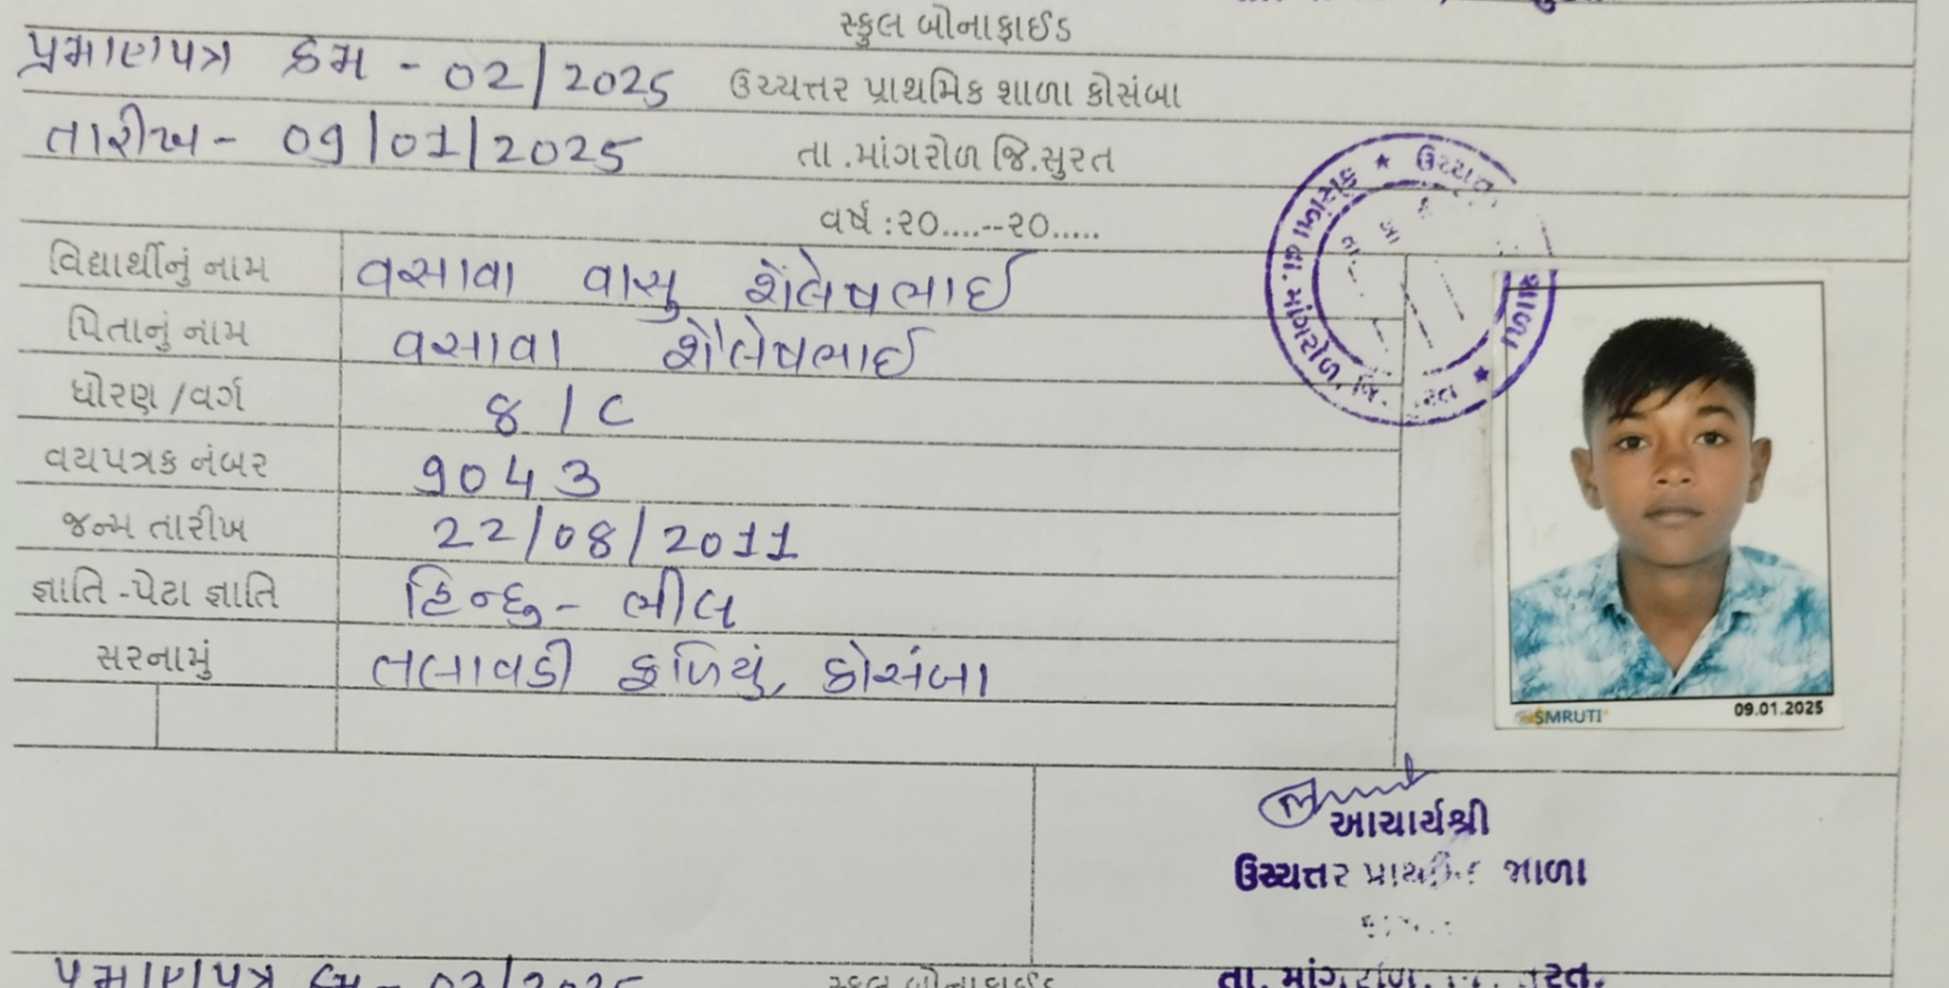 સ્કુલ બોનાફાઈડ
પ્રમાણપત્ર ક્રમ - 02/2025
ઉચ્ચત્તર પ્રાથમિક શાળા કોસંબા
તારીખ - 09/01/2025
તા.માંગરોળ જિ.સુરત
વર્ષ :૨૦....--૨૦.....
વિદ્યાર્થીનું નામ વસાવા વાસુ શૈલેષભાઈ
પિતાનું નામ વસાવા શૈલેષભાઈ
ધોરણ /વર્ગ 8 / C
વયપત્રક નંબર 9043
જન્મ તારીખ 22/08/2011
જ્ઞાતિ -પેટા જ્ઞાતિ હિન્દુ - ભીલ
સરનામું તલાવડી ફળિયું, કોસંબા
SMRUTI 09.01.2025
આચાર્યશ્રી
ઉચ્ચત્તર પ્રાથમિક શાળા
તા. માંગરોળ,
પ્રમાણપત્ર ક્રમ - 02/2025
સ્કુલ બોનાફાઈડ